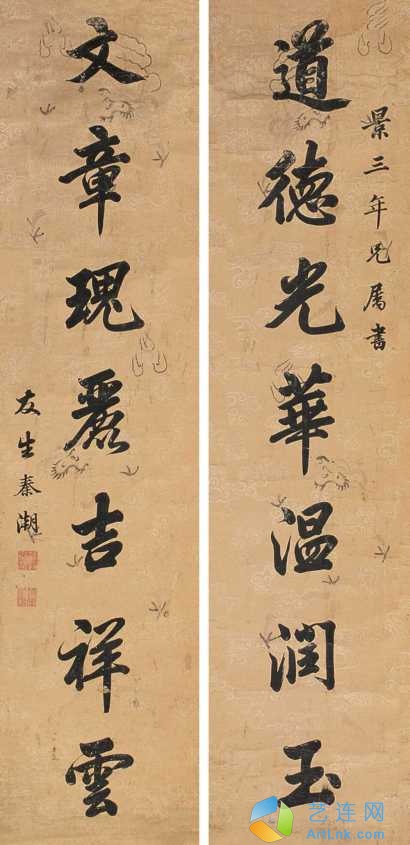 景三年兄属書
道德光華温潤玉
文章瑰麗吉祥雲
友生秦潮
艺连网
ArtLnk.com